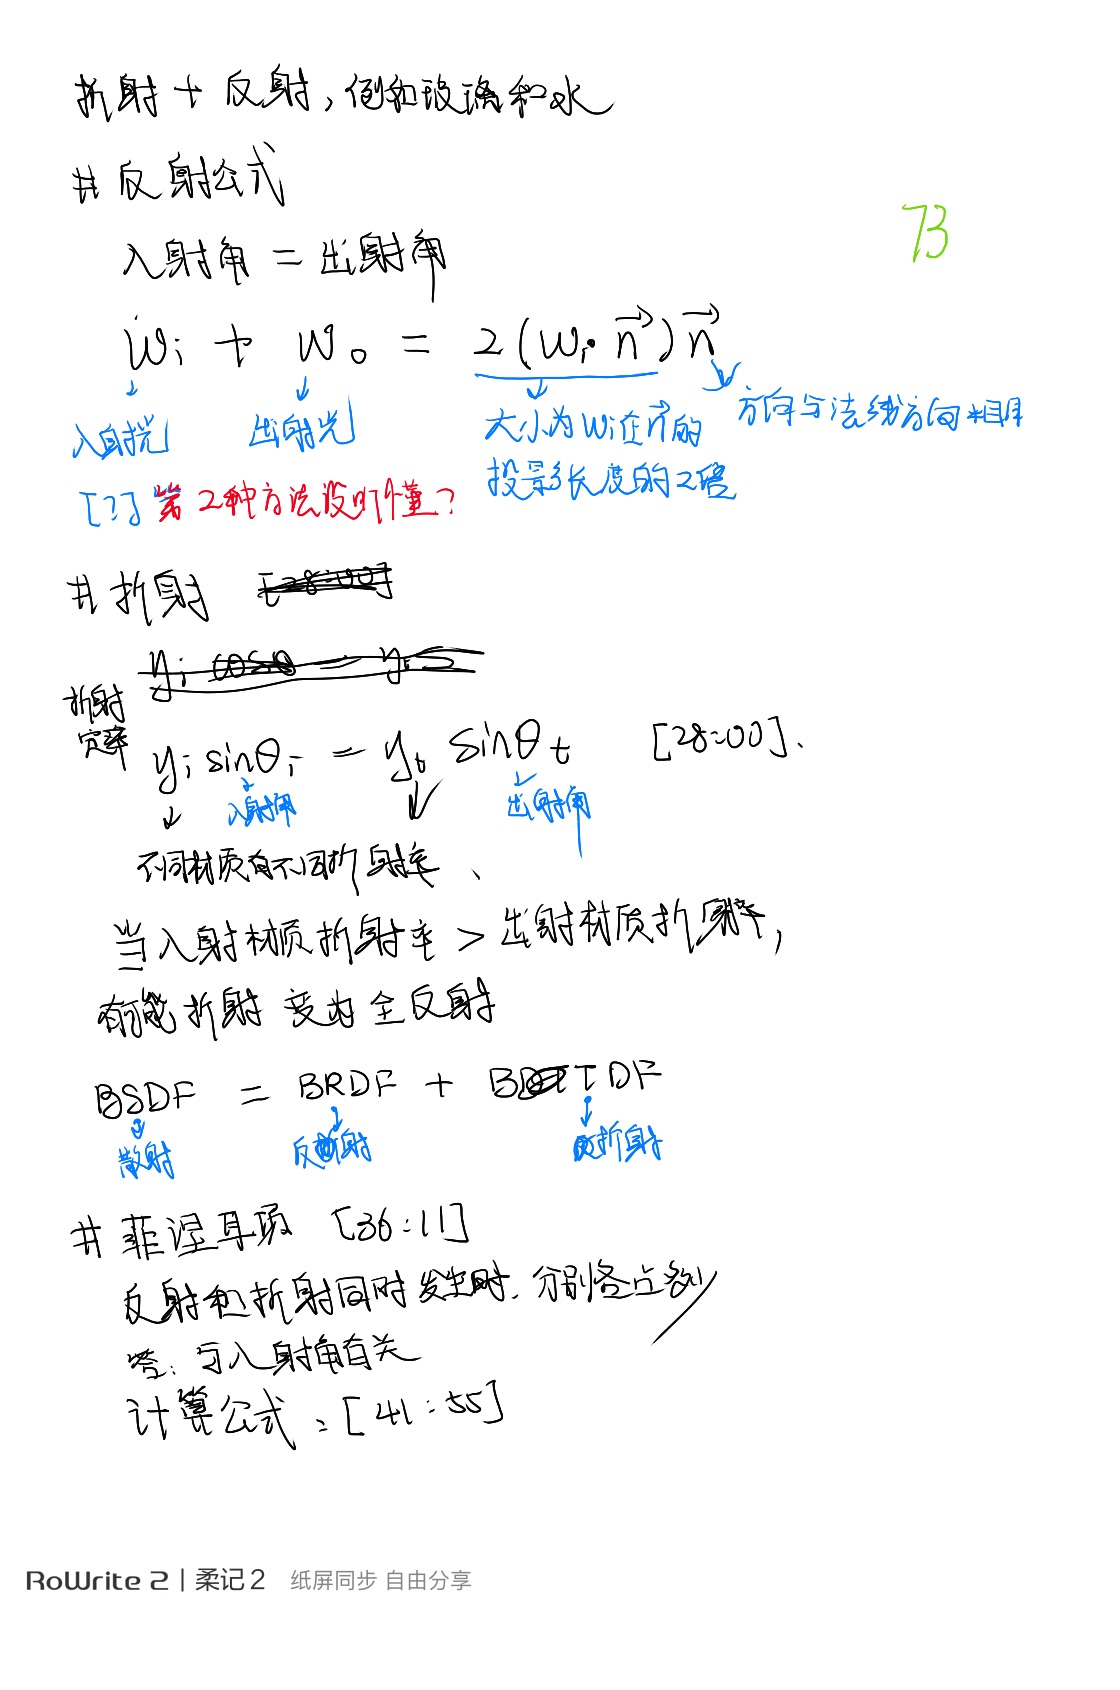 折射 + 反射, 例如玻璃和水
# 反射公式
73
入射角 = 出射角
wi + wo = 2(wi·n)n
入射光 出射光 大小为wi在n的投影长度的2倍 方向与法线方向相同
[?] 第2种方法没听懂?
# 折射
折射定率 yi sinθi = yt sinθt [28:00].
入射角 出射角
不同材质有不同折射率、
当入射材质折射率 > 出射材质折射率,
有可能折射变为全反射
BSDF = BRDF + BTDF
散射 反射 折射
# 菲涅耳项 [36:11]
反射和折射同时发生时. 分别各占多少
答: 与入射角有关
计算公式: [41:55]
RoWrite 2 | 柔记 2 纸屏同步 自由分享